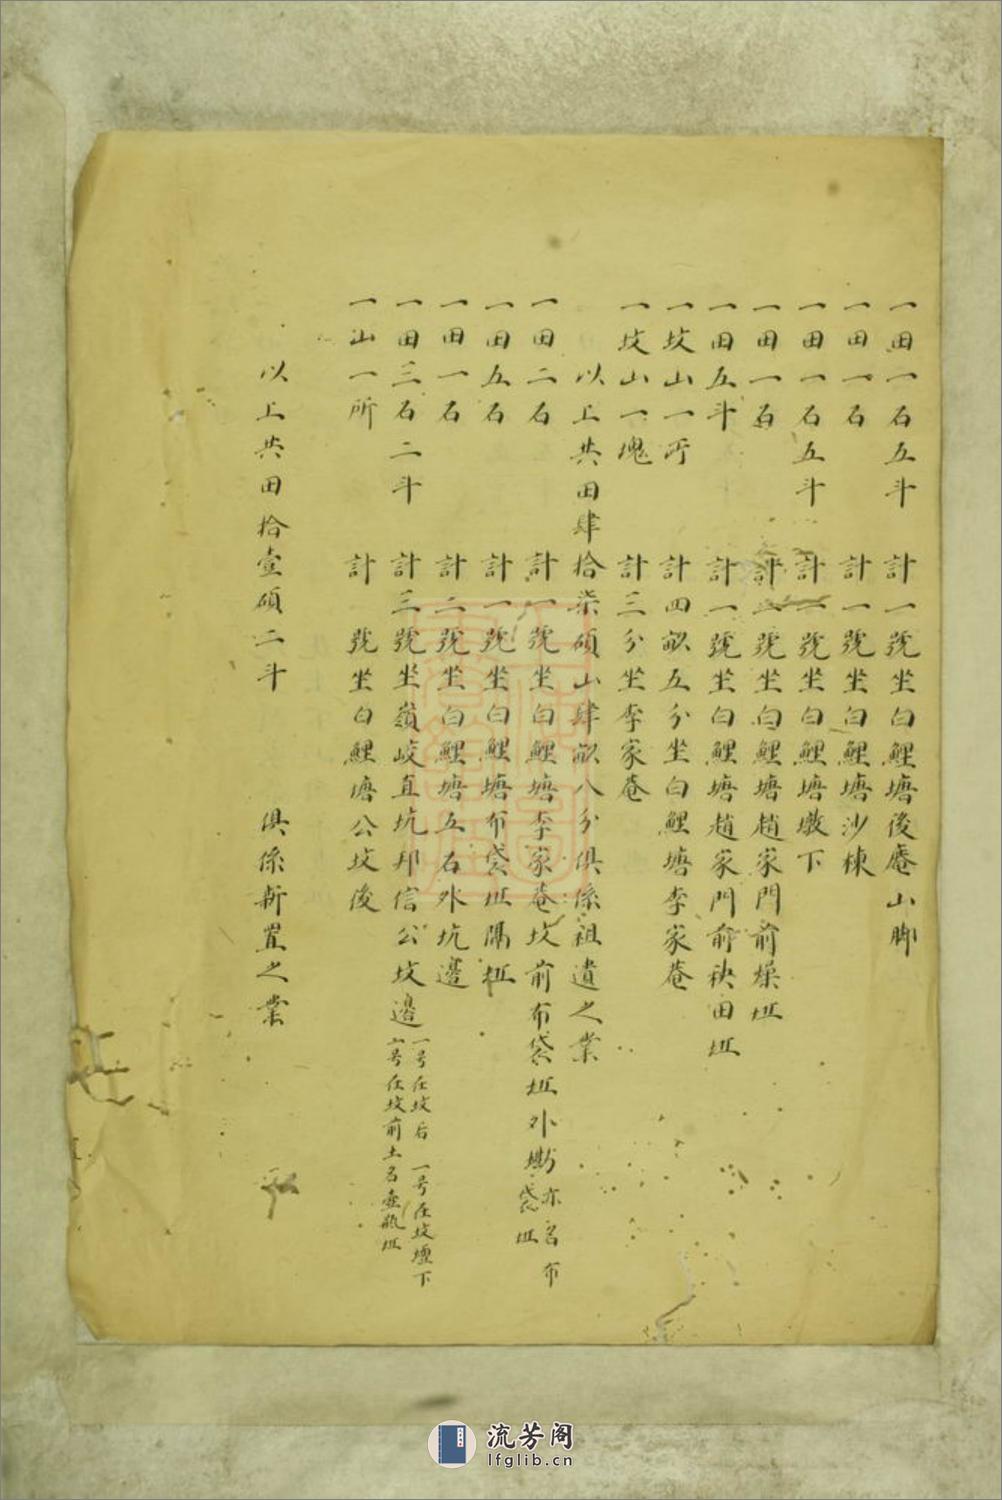 一田一石五斗　計一號坐白鯉塘後庵山脚
一田一石　計一號坐白鯉塘沙棟
一田一石五斗　計一號坐白鯉塘墩下
一田一石　計一號坐白鯉塘趙家門前燥坵
一田五斗　計一號坐白鯉塘趙家門前秧田坵
一坟山一所　計四畝五分坐白鯉塘李家菴
一坟山一塊　計三分坐李家菴
以上共田肆拾柒碩山肆畝八分俱係祖遺之業
一田二石　計一號坐白鯉塘李家菴坟前布袋坵外塝亦名布袋坵
一田五石　計一號坐白鯉塘布袋坵隔坵
一田一石　計二號坐白鯉塘五石外坑邊
一田三石二斗　計三號坐嶺峧直坑邦信公坟邊一号在坟后 一号在坟壇下 一号在坟前土名壷瓶坵
一山一所　計　號坐白鯉塘公坟後
以上共田拾壹碩二斗　俱係新置之業
流芳阁
lfglib.cn